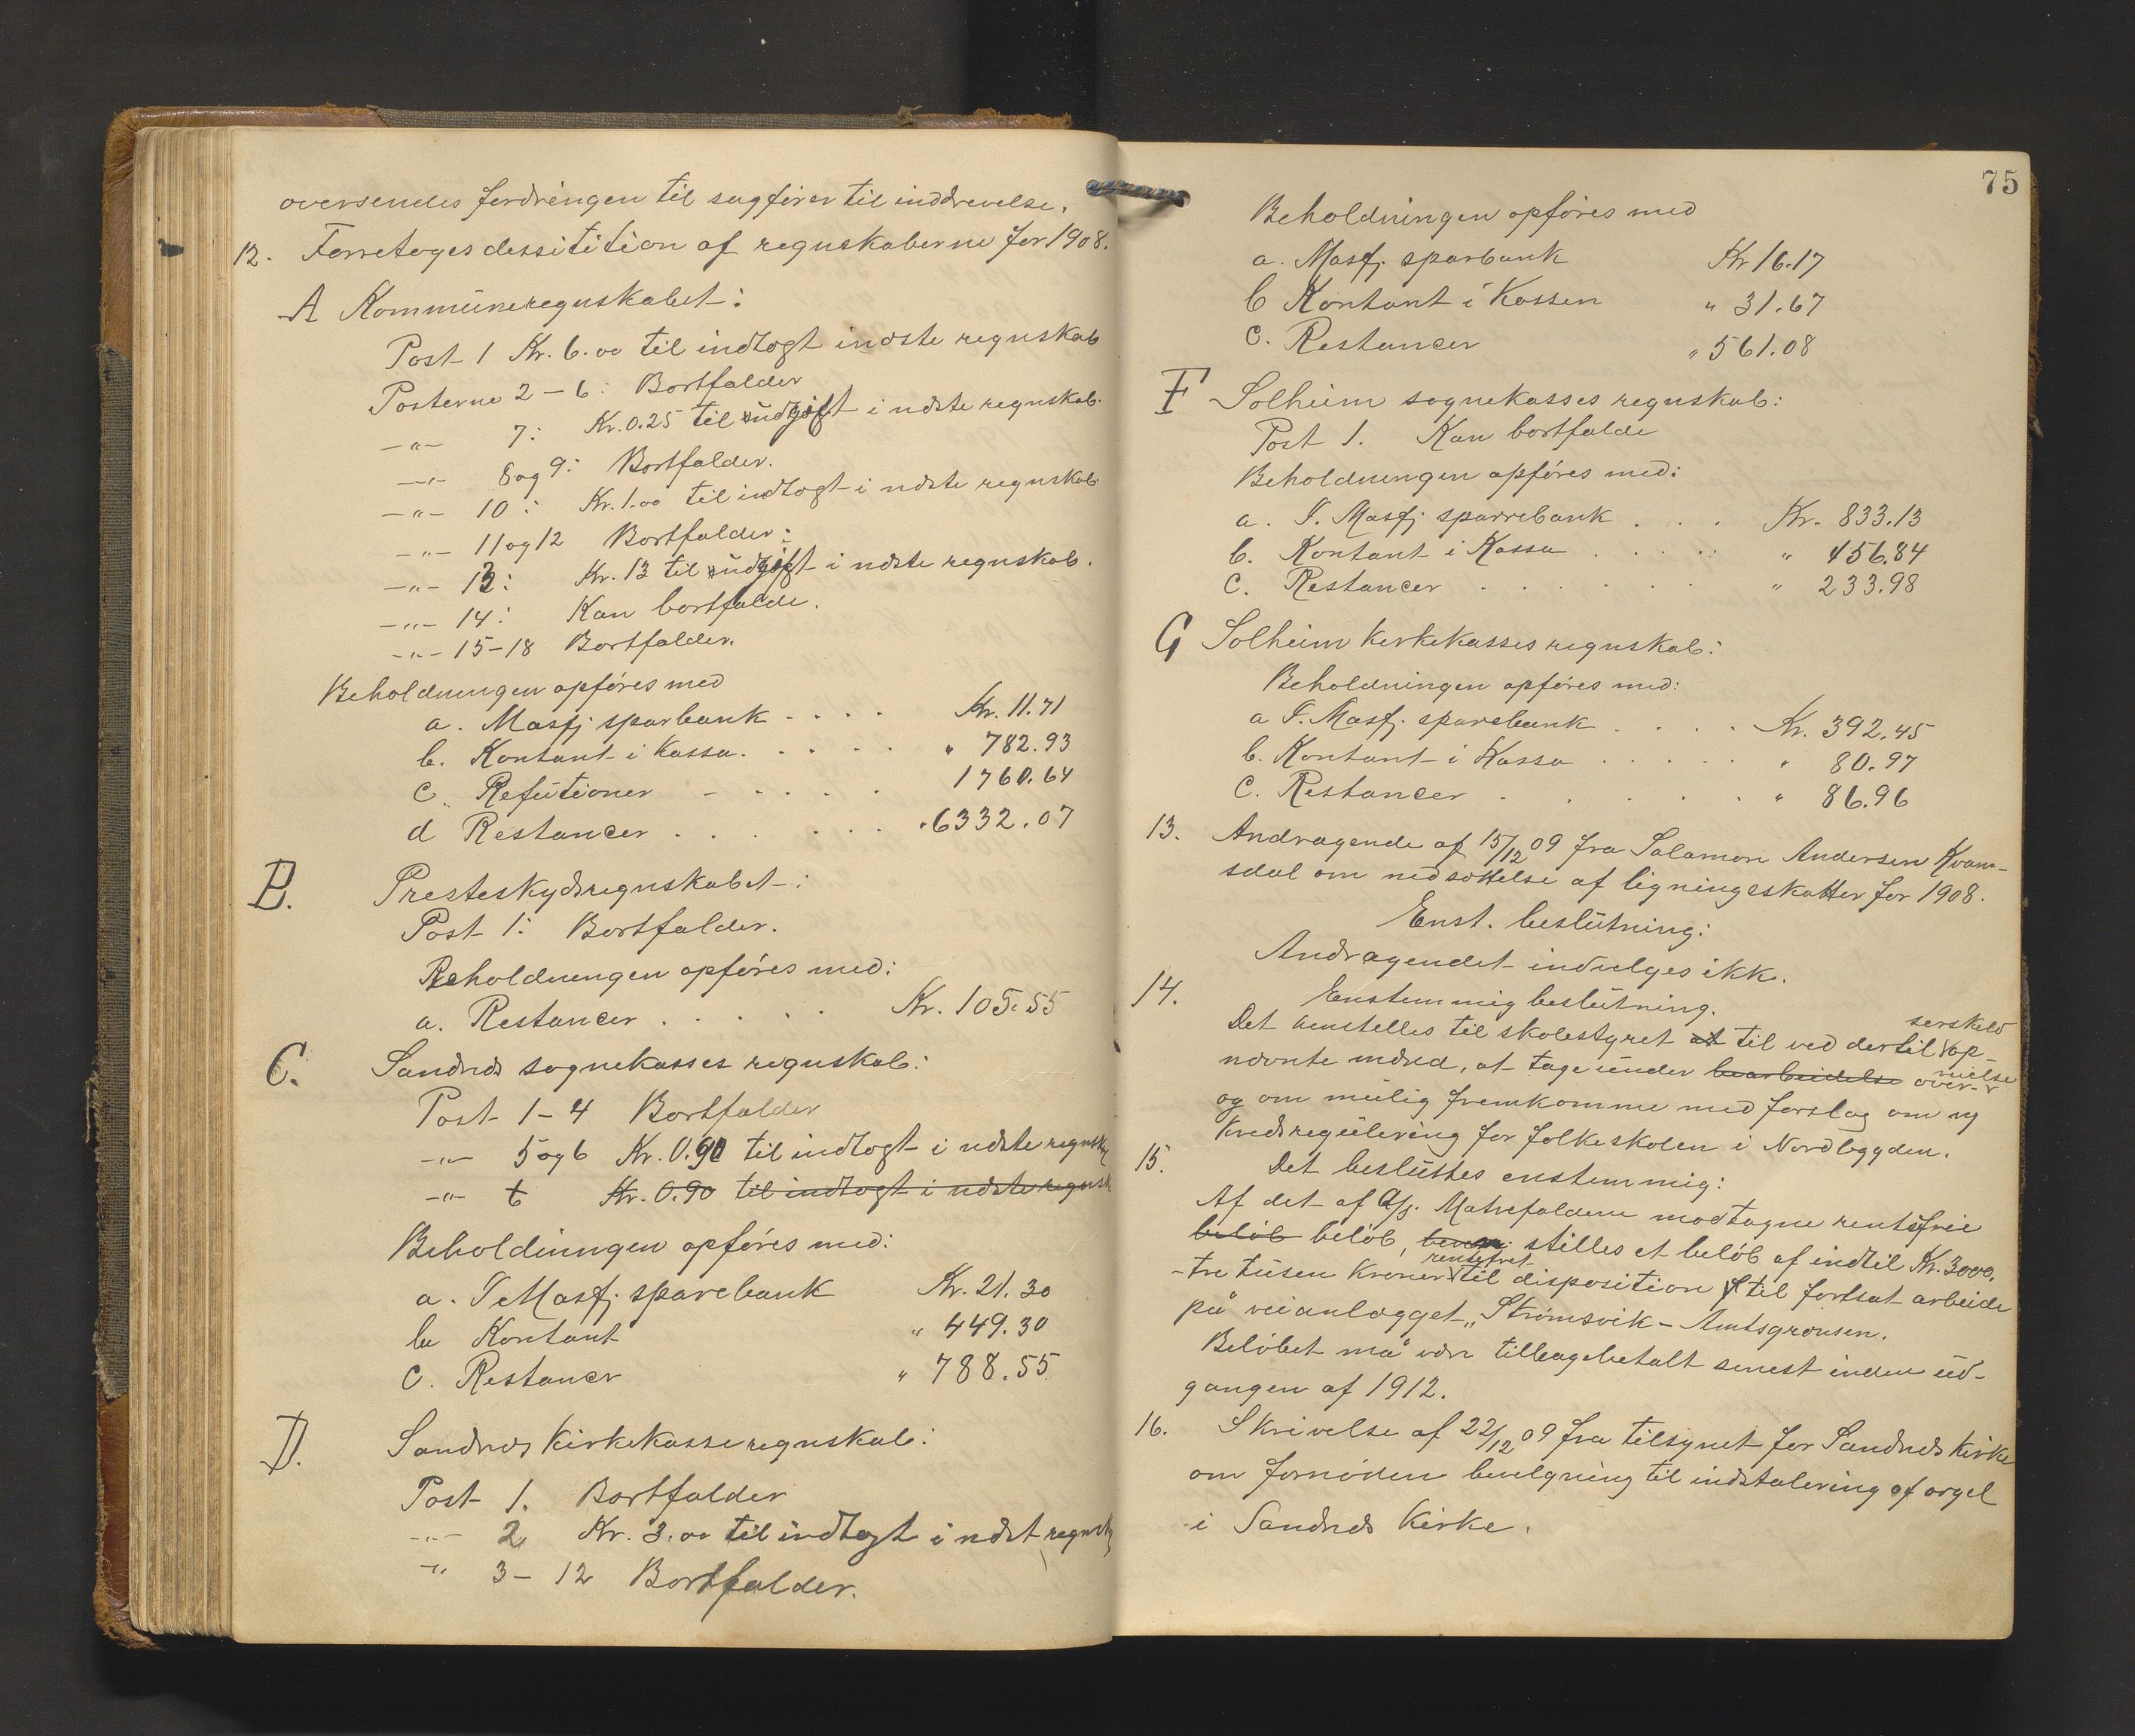 oversendes fordringen til sagfører til inddrevelse.
12. Forretoges dessitition af regnskaberne for 1908.
A Kommuneregnskabet:
Post 1 Kr. 6.00 til indtægt i næste regnskab
Posterne 2-6: Bortfalder
-"- 7: Kr. 0.25 til udgift i næste regnskab.
-"- 8 og 9: Bortfalder.
-"- 10: Kr. 1.00 til indtægt i næste regnskab
-"- 11 og 12 Bortfalder.
-"- 13: Kr. 13 til udgift i næste regnskab.
-"- 14: Kan bortfalde.
-"- 15-18 Bortfalder.
Beholdningen opføres med
a. Masfj. sparbank .... Kr. 11.71
b. Kontant i Kassa. .... " 782.93
c. Refutioner - .... 1760.64
d Restancer ....... "6332.07
B. Presteskydsregnskabet:
Post 1: Bortfalder.
Beholdningen opføres med:
a. Restancer ..... Kr. 105.55
C. Sandnæs sognekasses regnskab:
Post 1-4 Bortfalder
-"- 5 og 6 Kr. 0.90 til indtægt i næste regnsk
-"- 6 Kr. 0.90 til indtægt i næste regnsk
Beholdningen opføres med:
a. I Masfj. sparebank Kr. 21.30
b Kontant " 449.30
c. Restancer " 788.55
D. Sandnæs Kirkekasseregnskab:
Post 1. Bortfalder
-"- 2 Kr. 3.00 til indtægt i næst regnsk
-" 3-12 Bortfalder.
75
Beholdningen opføres med
a. Masfj. sparbank Kr 16.17
b Kontant i Kassen " 31.67
c. Restancer " 561.08
F Solheim sognekasses regnskab:
Post 1. Kan bortfalde
Beholdningen opføres med:
a. I. Masfj. sparrebank ... Kr. 833.13
b. Kontant i Kassa ..... " 456.84
c. Restancer ...... " 233.98
G Solheim Kirkekasses regnskab:
Beholdningen opføres med:
a I. Masfj. sparebank .... Kr. 392.45
b. Kontant i Kassa ..... " 80.97
c. Restancer ..... " 86.96
13. Andragende af 15/12 09 fra Salamon Andersen Kvam-
sdal om nedsættelse af ligningsskatter for 1908.
Enst. beslutning:
Andragendet indvlges ikke.
14. Enstemmig beslutning.
særskild
Det henstilles til skolestyret at til ved dertil op-
nævnte mænd, at tage under bearbeidelse over-
veielse
og om mulig fremkomme med forslag om ny
Kredsregulering for folkeskolen i Nordbygden.
15. Det besluttes enstemmig:
Af det af A/s. Matrefaldene modtagne rentefrie
beløb beløb, stilles et beløb af indtil Kr. 3000,
rentefrit
-tre tusen Kroner til disposition til fortsat arbeide
på veianlægget "Strømsvik - Amtsgrænsen.
Beløbet må være tilbagebetalt senest inden ud-
gangen af 1912.
16. Skrivelse af 22/12 09 fra tilsynet for Sandnæs kirke
om fornøden bevilgning til indstalering af orgel
i Sandnæs Kirke.